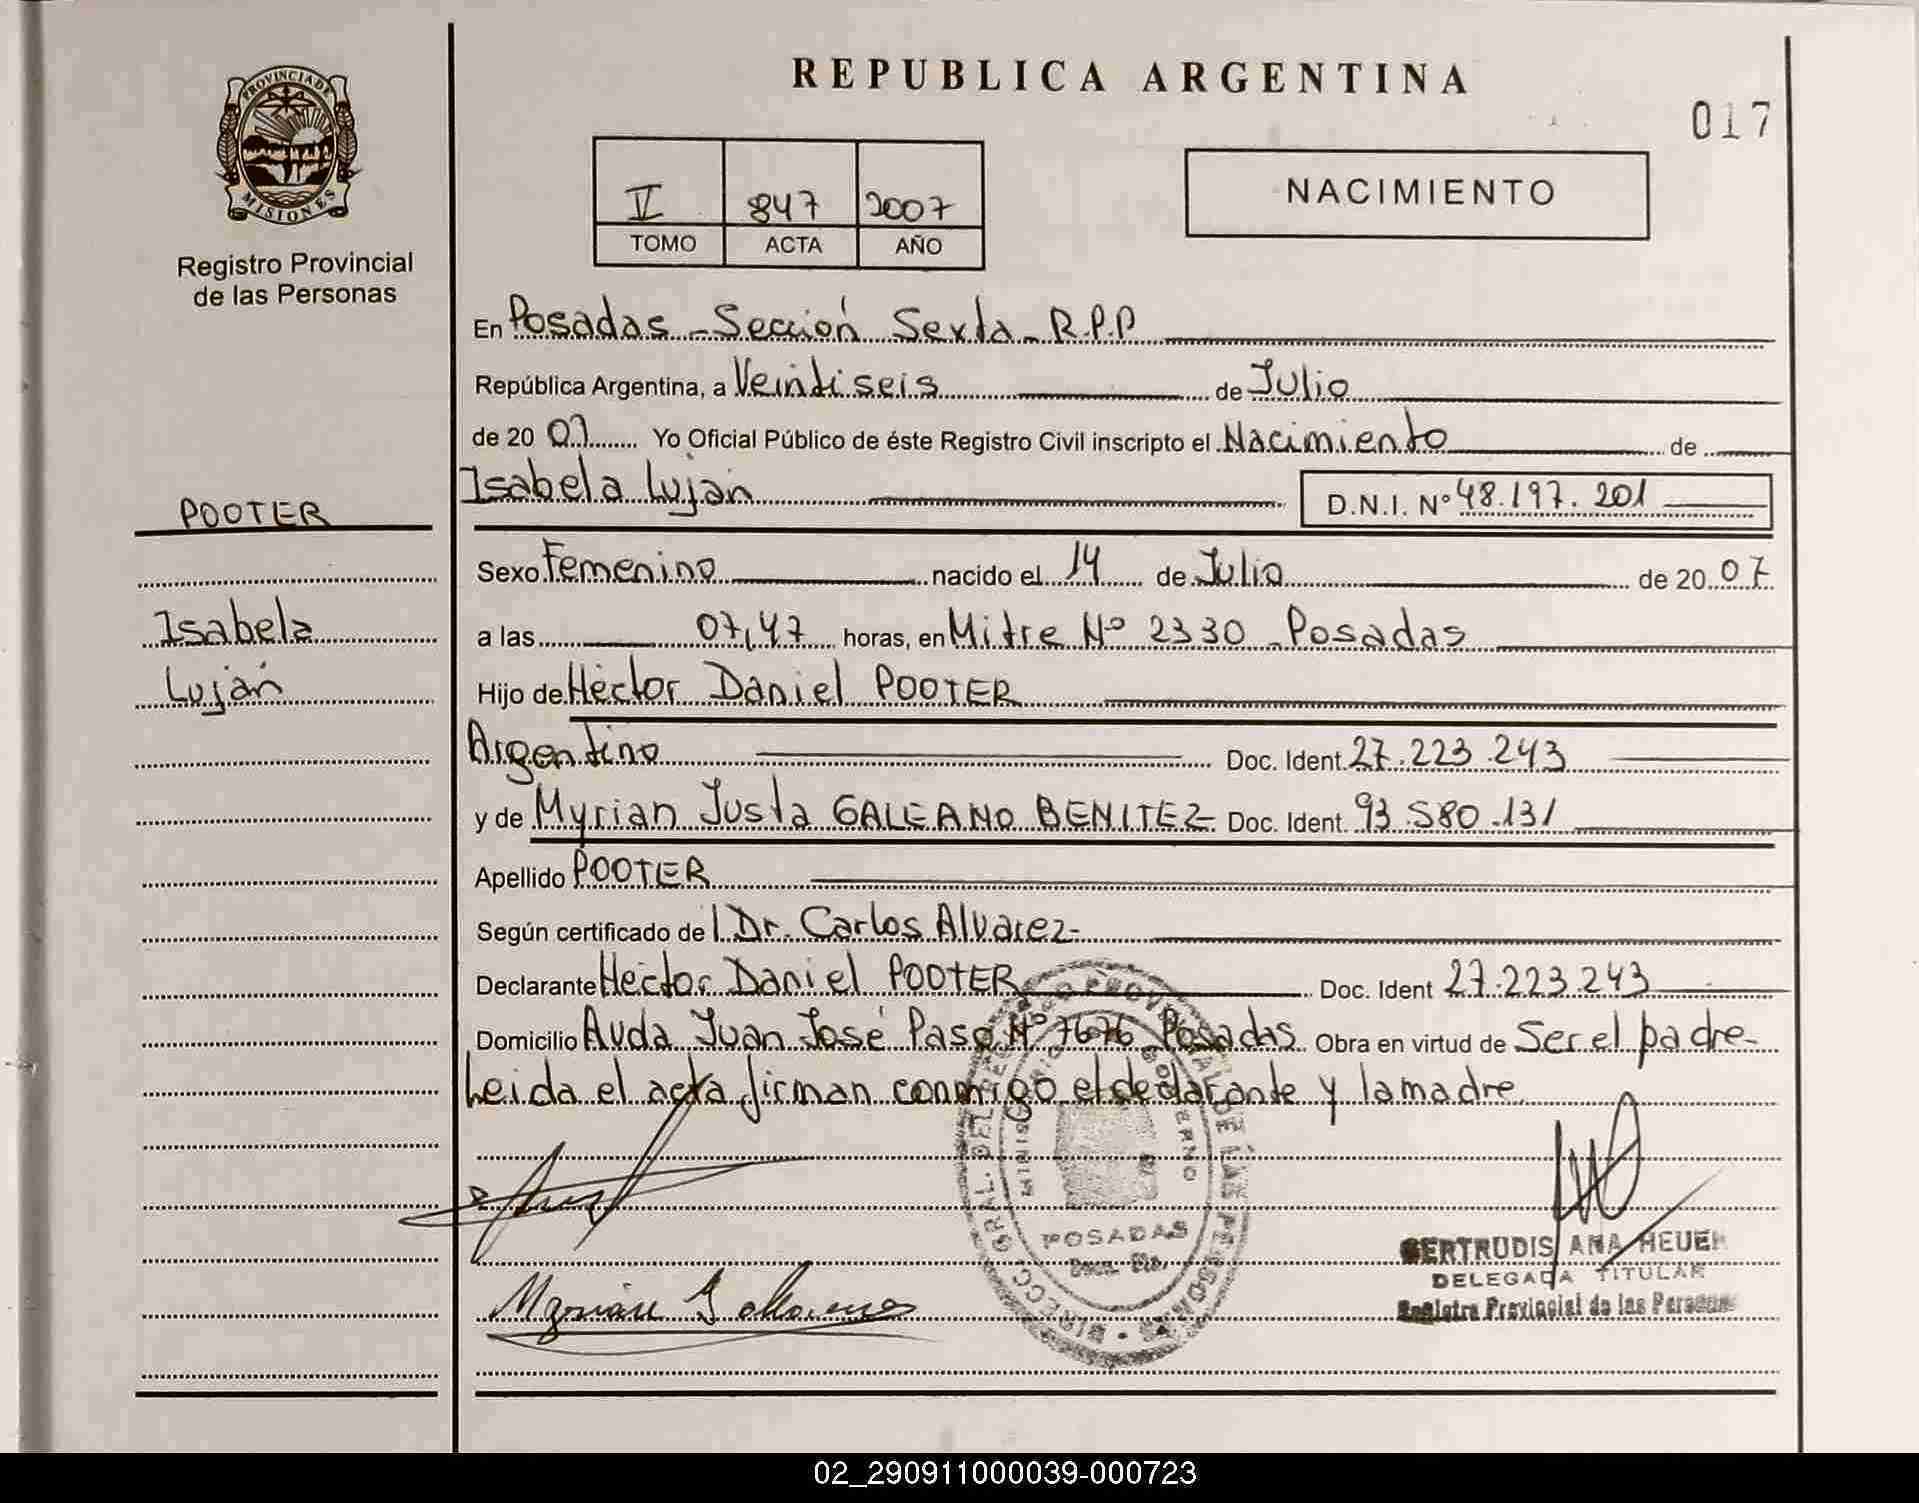 REPUBLICA ARGENTINA
017
PROVINCIA DE
MISIONES
Registro Provincial
de las Personas
V 847 2007
TOMO ACTA AÑO
NACIMIENTO
En Posadas - Sección Sexta - R.P.P
República Argentina, a Veintiseis de Julio
de 20 07 Yo Oficial Público de éste Registro Civil inscripto el Nacimiento de
Isabela Luján D.N.I. Nº 48.197.201
POOTER
Isabela
Luján
Sexo Femenino nacido el 14 de Julio de 20 07
a las 07,47 horas, en Mitre Nº 2330 - Posadas
Hijo de Héctor Daniel POOTER
Argentino Doc. Ident. 27.223.243
y de Myrian Justa GALEANO BENITEZ Doc. Ident. 93.580.131
Apellido POOTER
Según certificado de l Dr. Carlos Alvarez-
Declarante Héctor Daniel POOTER Doc. Ident 27.223.243
Domicilio Avda Juan José Paso Nº 7676 Posadas Obra en virtud de Ser el padre-
Leida el acta firman conmigo el declarante y la madre
POSADAS
GERTRUDIS ANA HEUER
DELEGADA TITULAR
Registro Provincial de las Personas
02_290911000039-000723